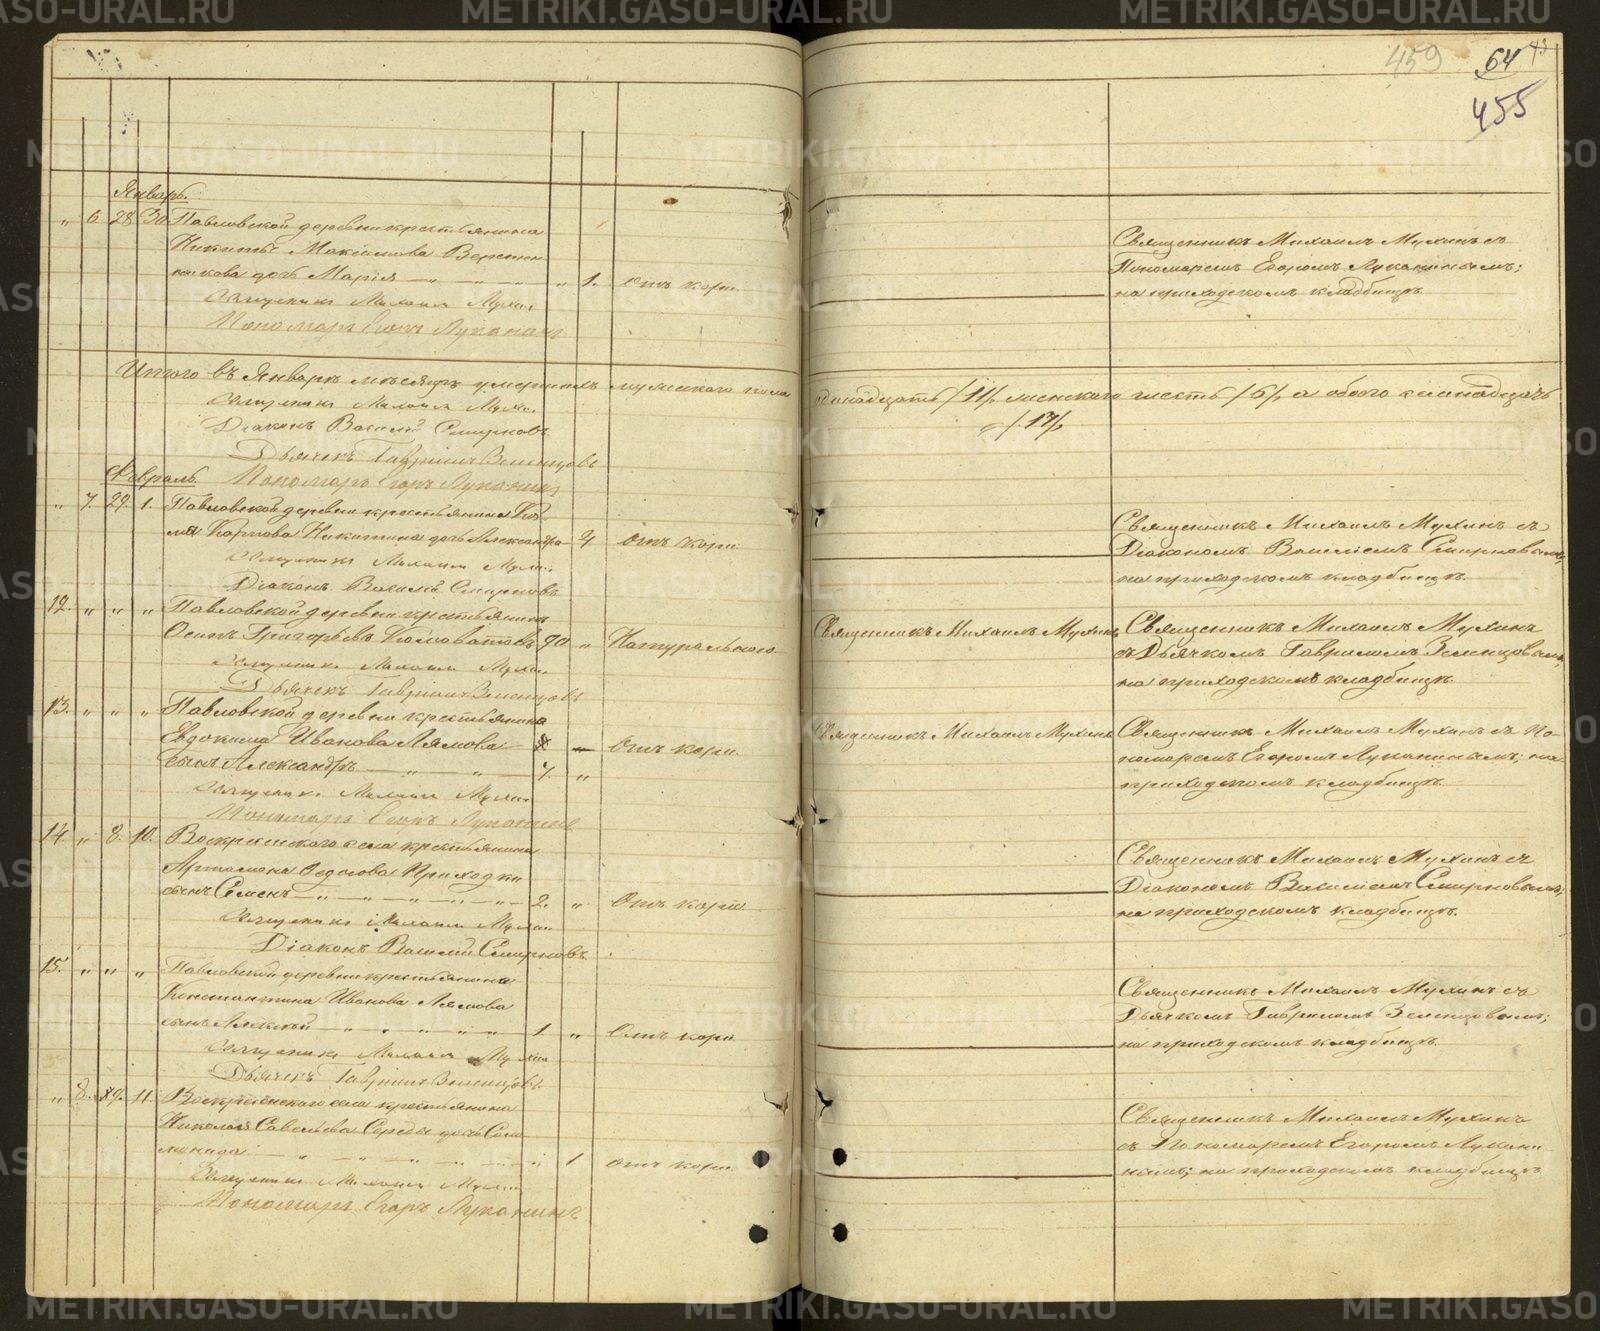 459 64 43
455
Январь.
„ 6. 28. 30. Павловской деревни крестьянина
Никиты Максимова Веретен
никова дочь Марія „ 1. отъ кори.
Священникъ Михаилъ Мухинъ
Пономарь Егоръ Луканинъ
Священникъ Михаилъ Мухинъ съ
Пономаремъ Егоромъ Луканинымъ;
на приходскомъ кладбищѣ.
Итого въ Январѣ мѣсяцѣ умершихъ мужескаго пола
одинадцать /11/, женскаго шесть /6/, а обоего семнадцать
/17/.
Священникъ Михаилъ Мухинъ
Діаконъ Василій Смирновъ
Дьячекъ Гавріилъ Зеленцовъ
Пономарь Егоръ Луканинъ
Февраль.
„ 7. 29. 1. Павловской деревни крестьянина
Карпова Никитина дочь Александра отъ кори.
Священникъ Михаилъ Мухинъ
Діаконъ Василій Смирновъ
Священникъ Михаилъ Мухинъ съ
Діакономъ Василіемъ Смирновымъ;
на приходскомъ кладбищѣ.
12. „ „ „ Павловской деревни крестьянинъ
Осипъ Григорьевъ 70 „ Натуральною
Священникъ Михаилъ Мухинъ
Дьячекъ Гавріилъ Зеленцовъ
Священникъ Михаилъ Мухинъ
Священникъ Михаилъ Мухинъ
съ Дьячкомъ Гавріиломъ Зеленцовымъ
на приходскомъ кладбищѣ.
13. „ „ „ Павловской деревни крестьянина
Евдокима Иванова Лямова отъ кори
сынъ Александръ „ „ „
Священникъ Михаилъ Мухинъ
Пономарь Егоръ Луканинъ
Священникъ Михаилъ Мухинъ
Священникъ Михаилъ Мухинъ съ По-
номаремъ Егоромъ Луканинымъ; на
приходскомъ кладбищѣ.
14. „ 8. 10. Воскресенскаго села крестьянина
Артамона Федосова Приходки
сынъ Семенъ 2. „ Отъ кори
Священникъ Михаилъ Мухинъ
Діаконъ Василій Смирновъ.
Священникъ Михаилъ Мухинъ съ
Діакономъ Василіемъ Смирновымъ;
на приходскомъ кладбищѣ.
15. „ „ „ Павловской деревни крестьянина
Константина Иванова Лямова
сынъ Алексѣй 1. „ Отъ кори
Священникъ Михаилъ Мухинъ
Дьячекъ Гавріилъ Зеленцовъ.
Священникъ Михаилъ Мухинъ съ
Дьячкомъ Гавріиломъ Зеленцовымъ;
на приходскомъ кладбищѣ.
„ 8. 9. 11. Воскресенскаго села крестьянина
Николая Савельева Середы дочь Соло
монида „ 1 отъ кори
Священникъ Михаилъ Мухинъ
Пономарь Егоръ Луканинъ
Священникъ Михаилъ Мухинъ
съ Пономаремъ Егоромъ Лукани
нымъ; на приходскомъ кладбищѣ
METRIKI.GASO-URAL.RU